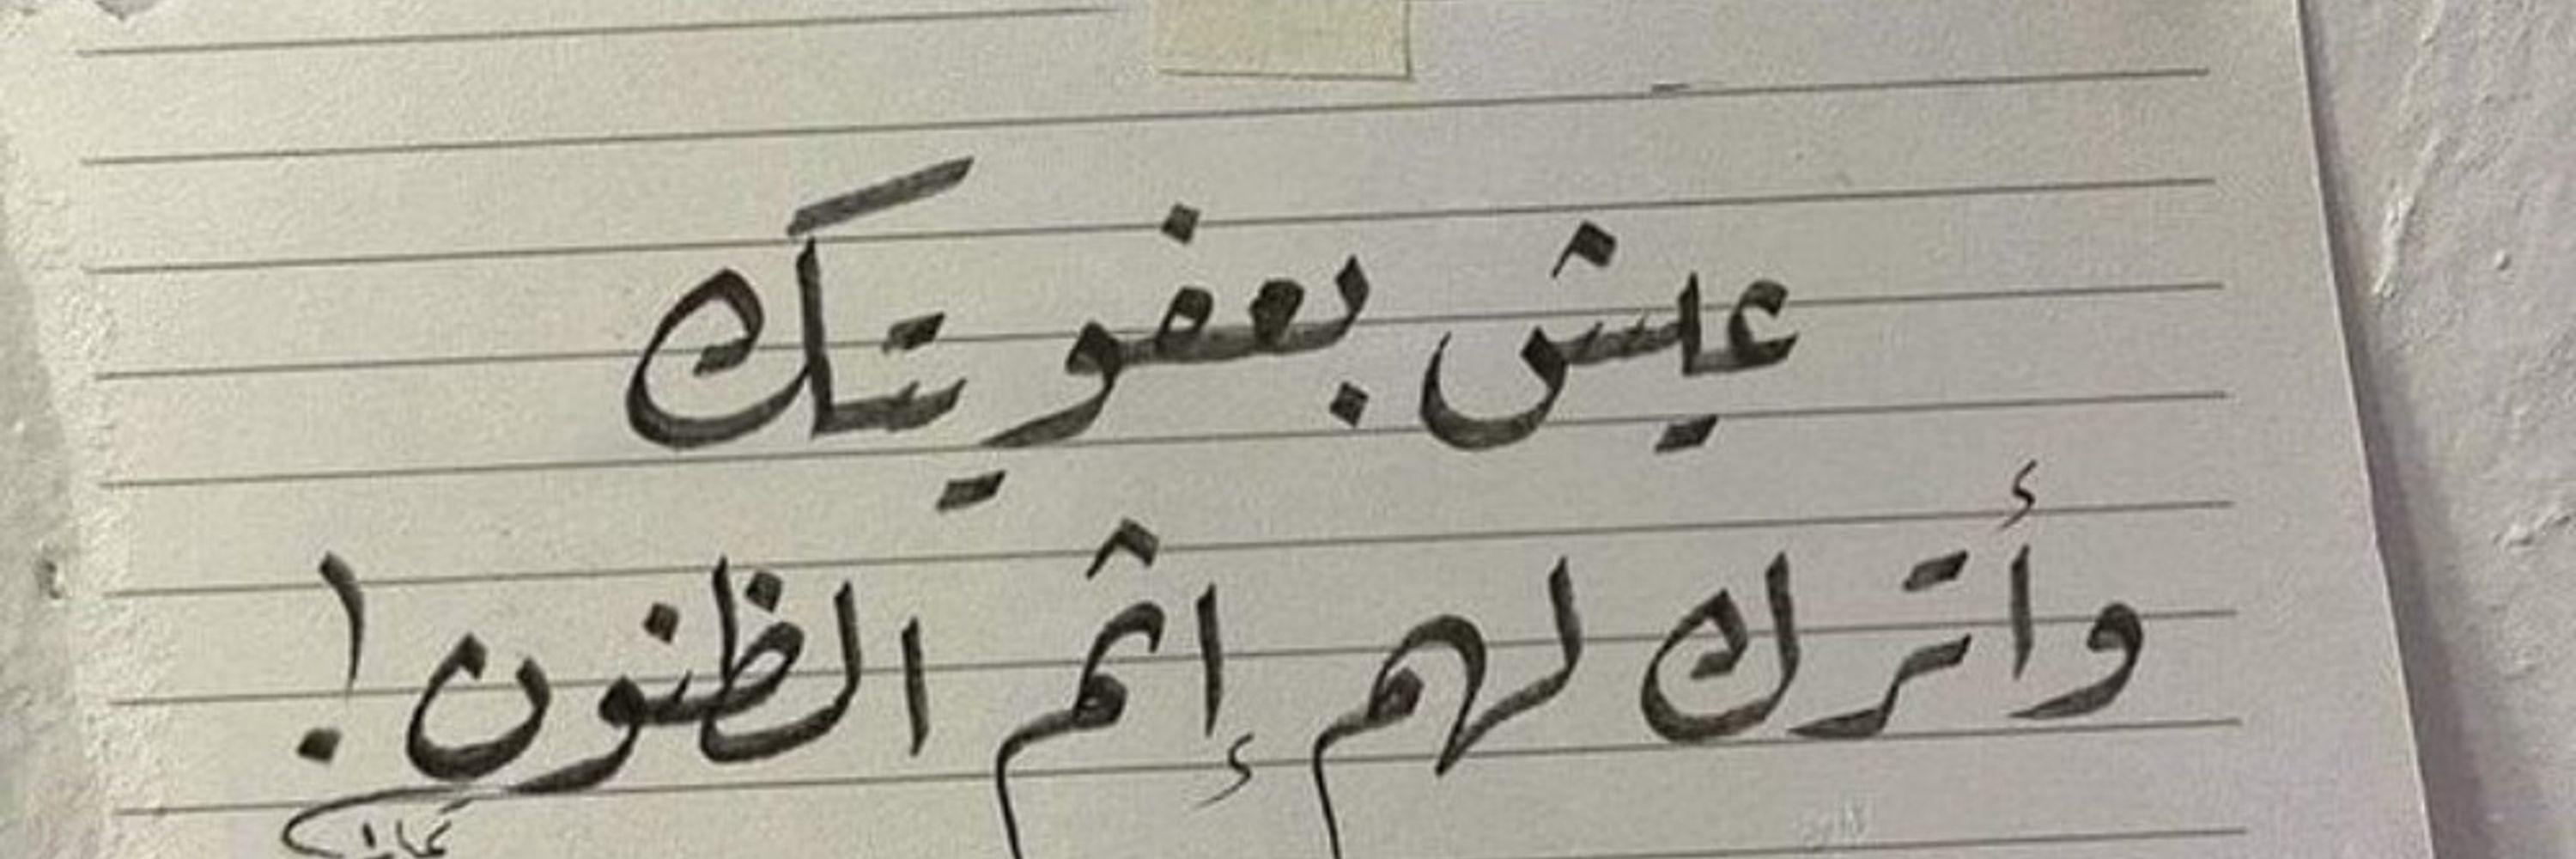 عيش بعفويتك
وأترك لهم إثم الظنون!